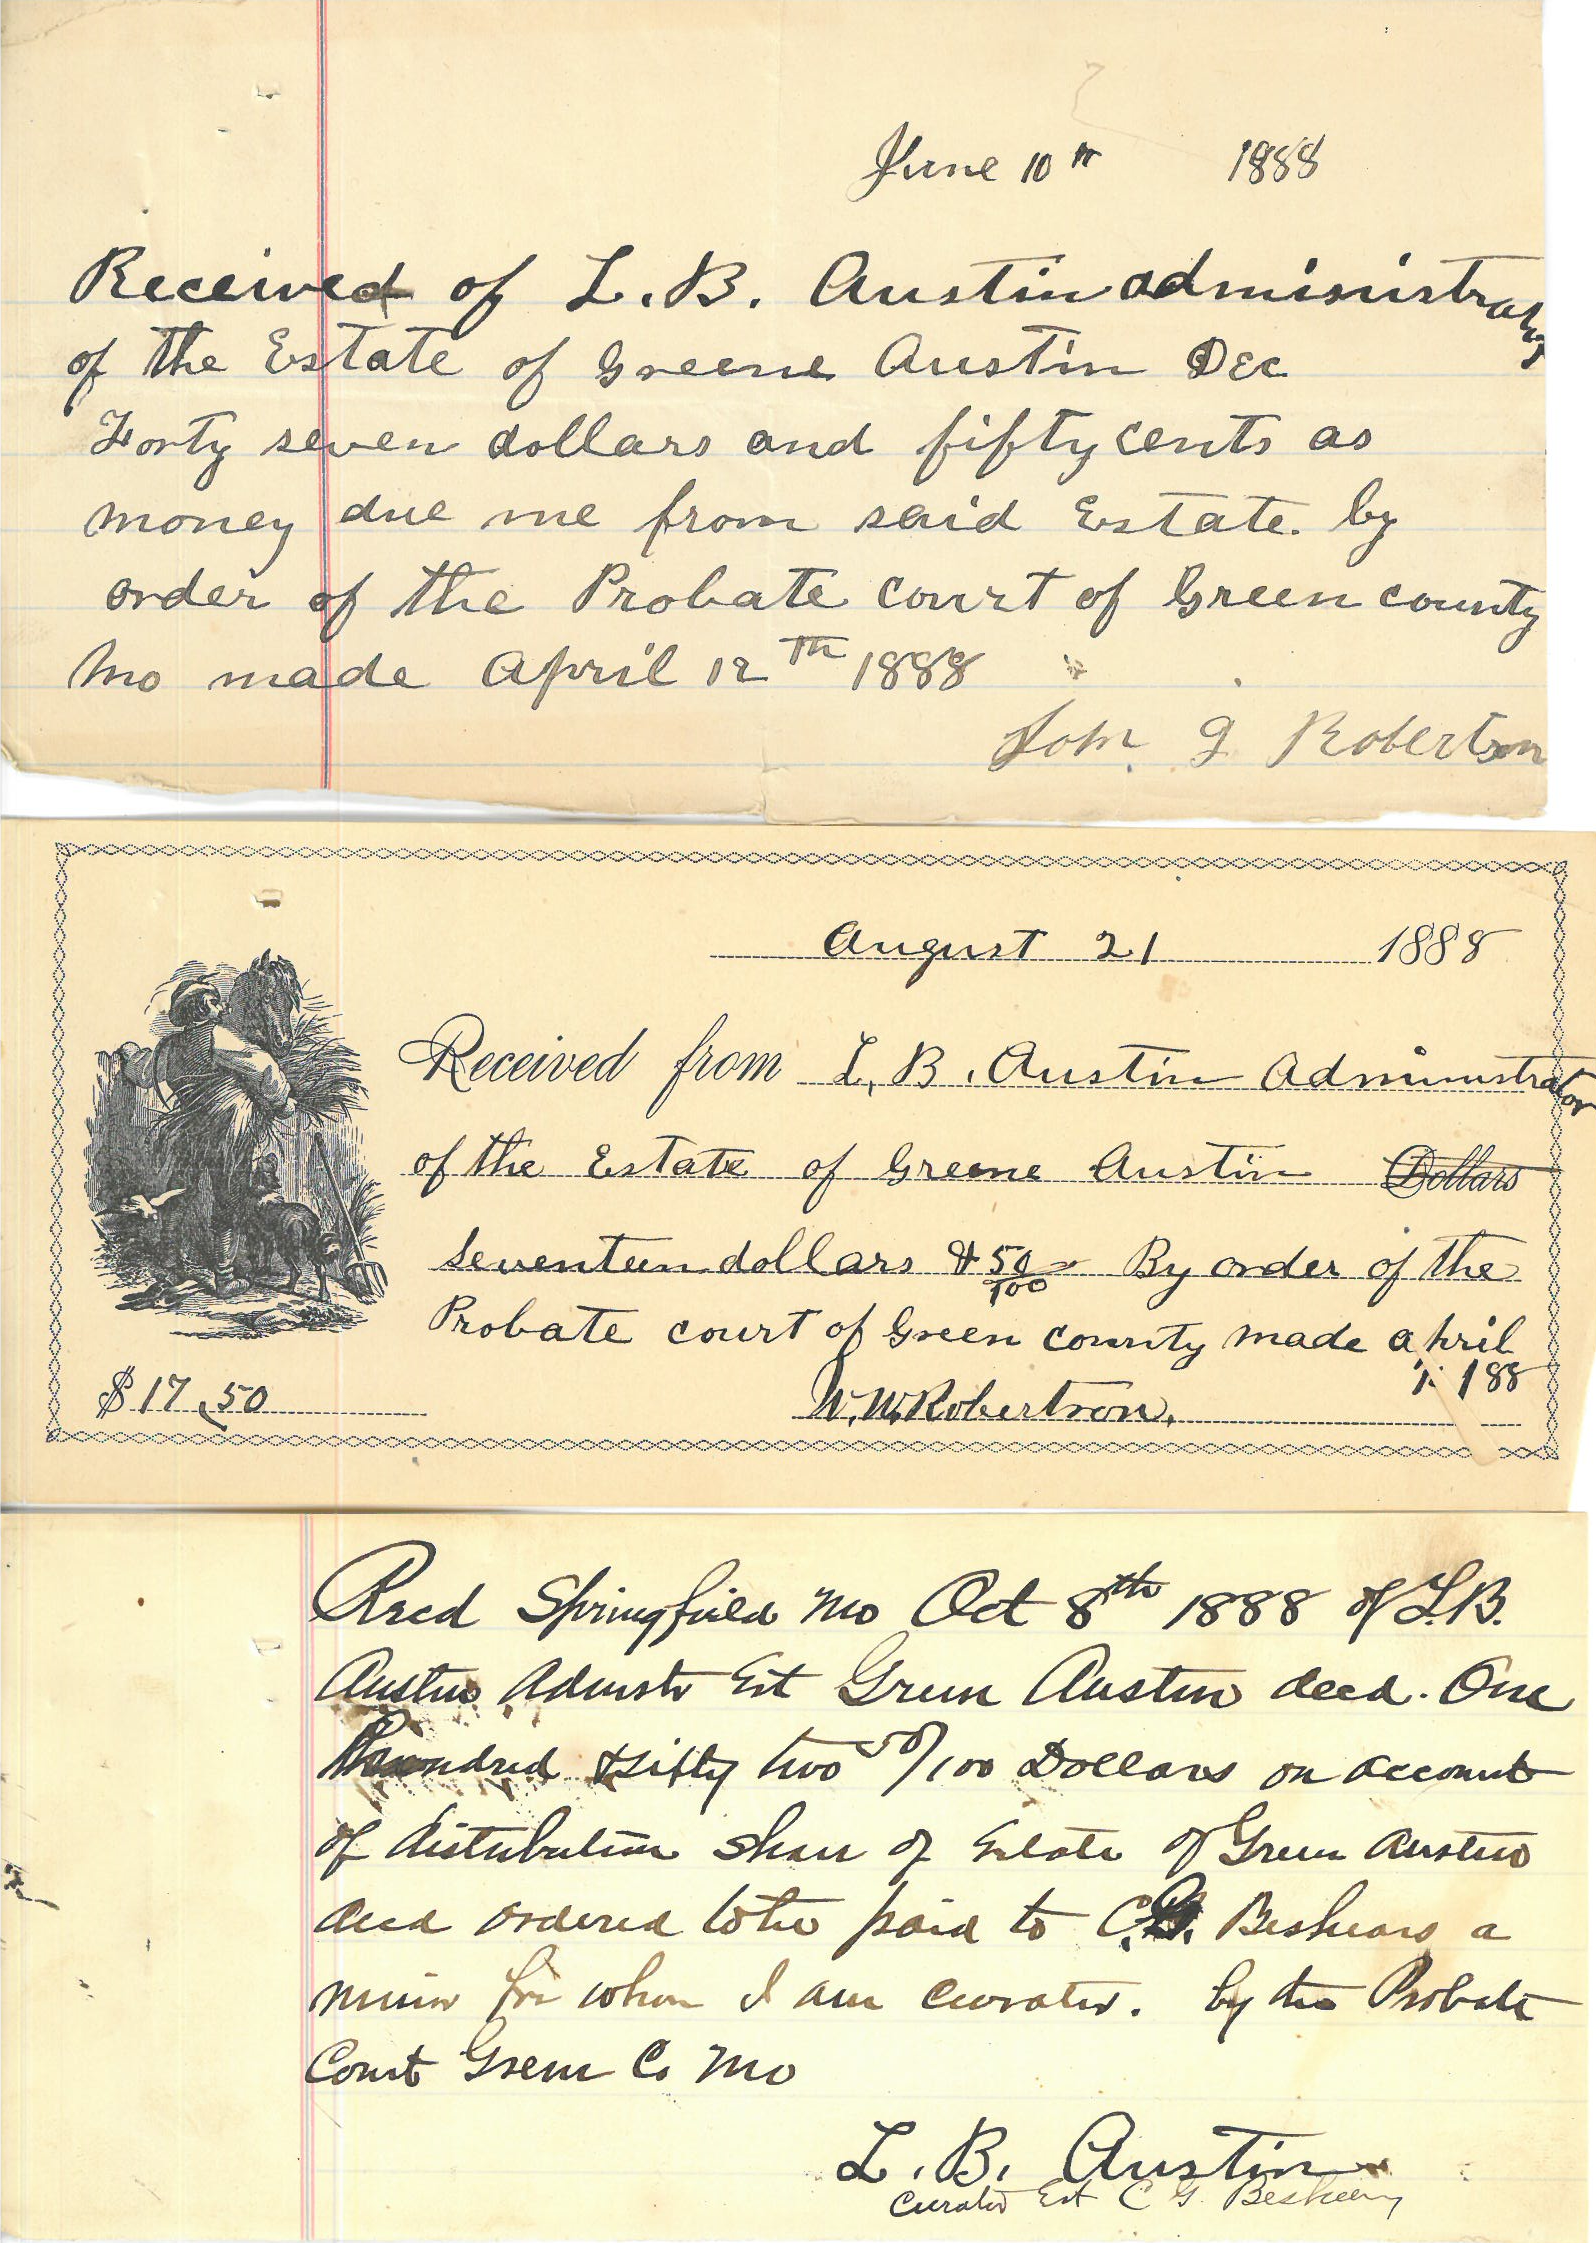 June 10th 1888
Received of L. B. Austin administrator
of the Estate of Greene Austin Dec
Forty seven dollars and fifty cents as
money due me from said Estate. by
order of the Probate court of Green county
Mo made April 12th 1888
G Robertson
August 21 1888
Received from L. B. Austin Administrator
of the Estate of Greene Austin Dollars
Seventeen dollars & 50/100 By order of the
Probate court of Green county made april
188
$17.50 W. W. Robertson.
Recd Springfield Mo Oct 8th 1888 of L.B.
Austin Admstr Est Green Austin decd. One
hundred & fifty two 50/100 Dollars on account
of distribution share of Estate of Green Austin
decd ordered to be paid to C. G. Beshears a
minor for whom I am curator. by the Probate
Court Green Co Mo
L. B. Austin
Curator Est C G Beshears